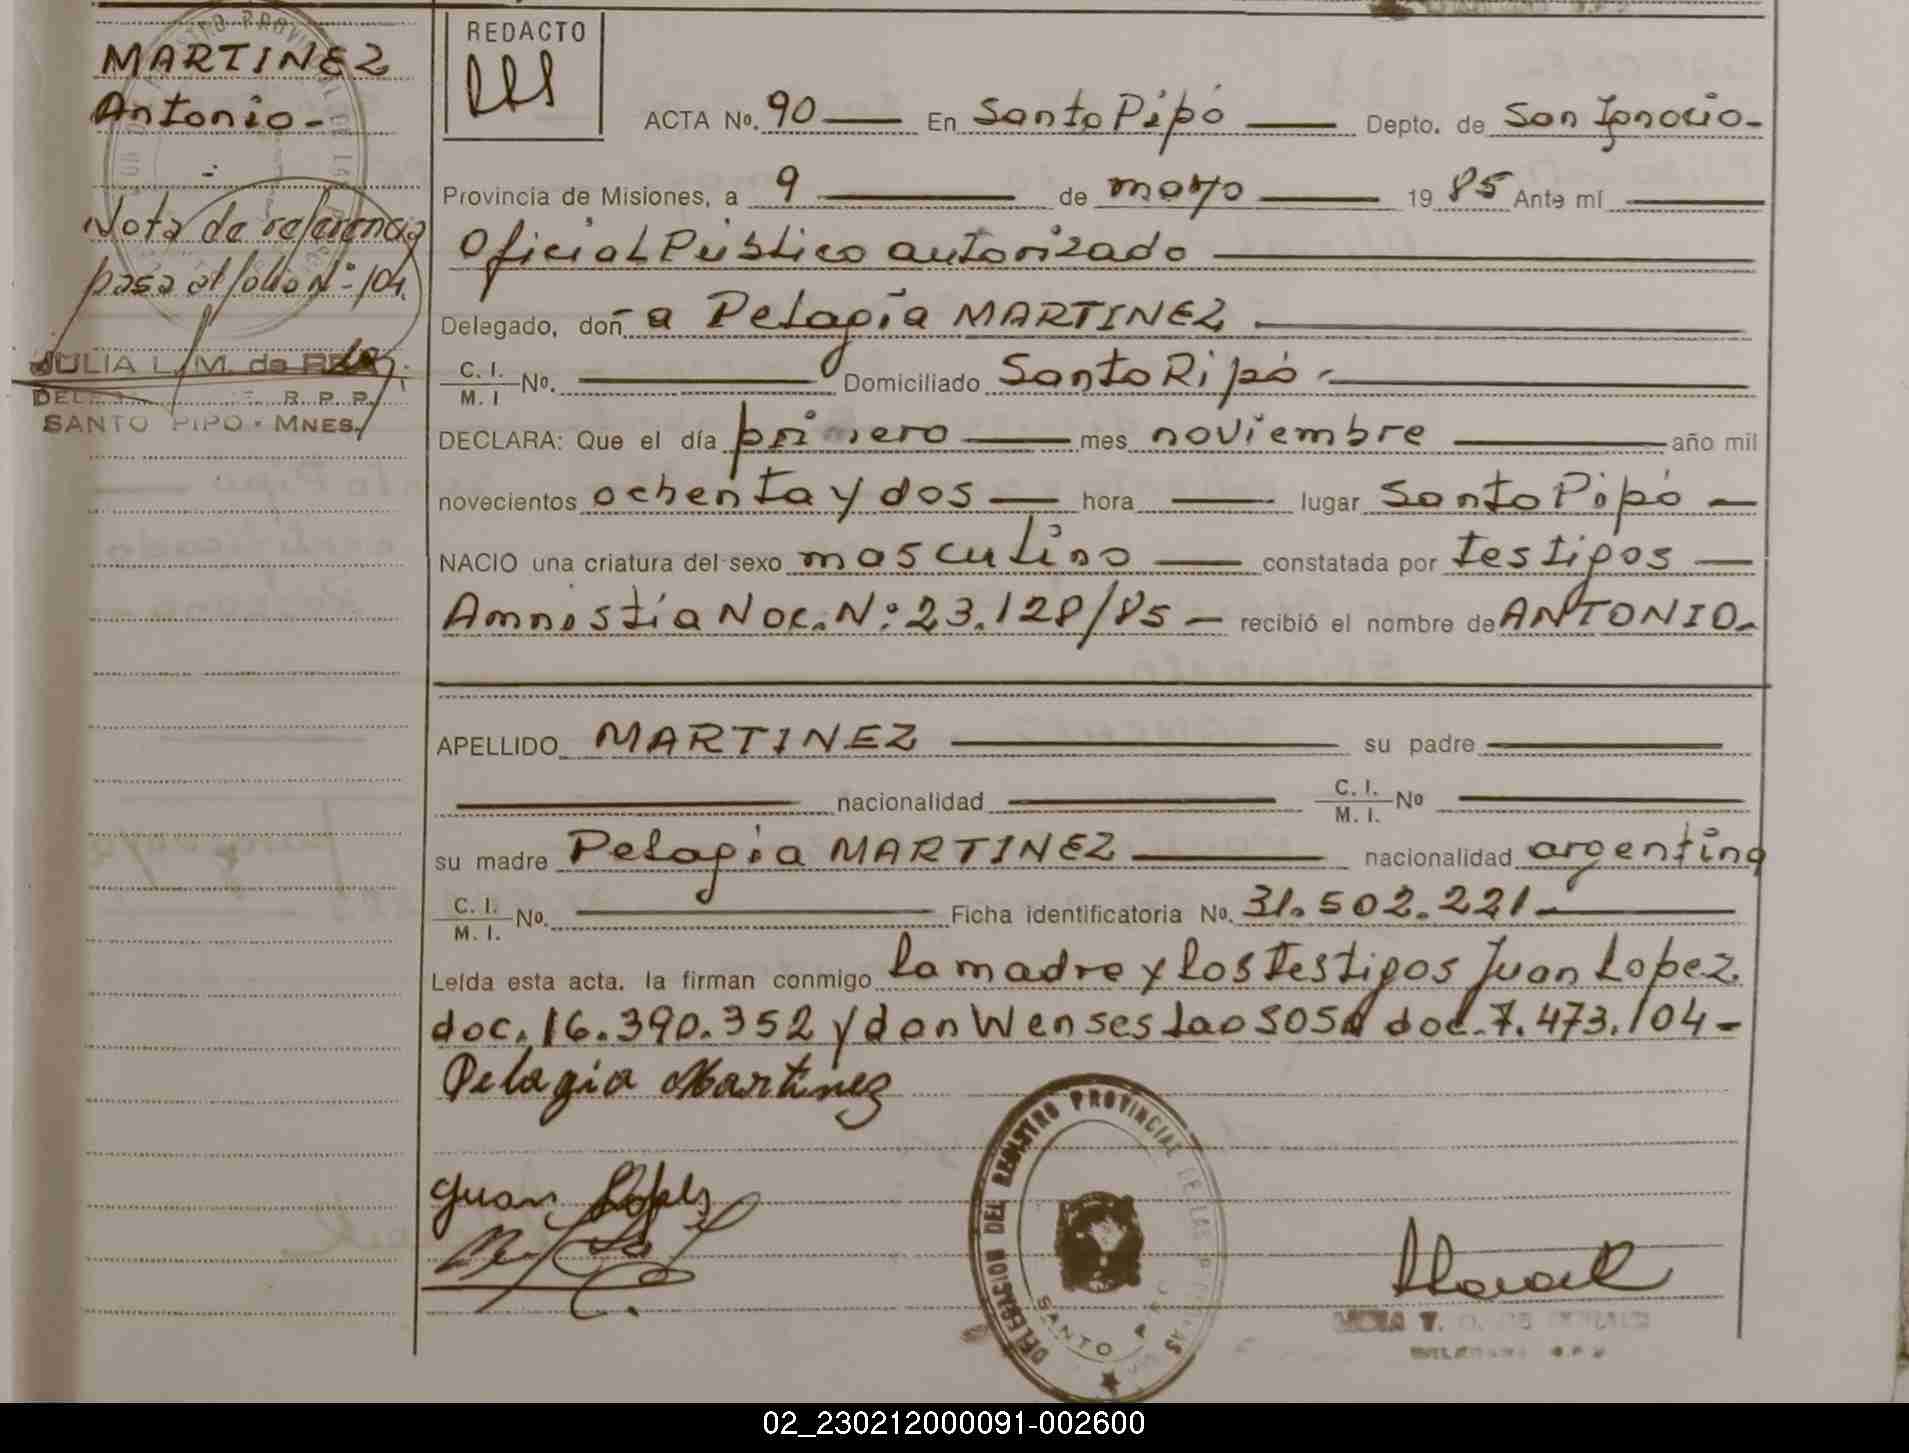 MARTINEZ
Antonio-
Nota de referencia
pasa al folio Nº 104.
JULIA L. M. de
R. P. P.
SANTO PIPO - MNES.
REDACTO
ACTA No. 90 En Santo Pipó Depto. de San Ignacio-
Provincia de Misiones, a 9 de mayo 1985 Ante mí
Oficial Público autorizado
Delegado, doña Pelagia MARTINEZ
C. I.
M. I No. Domiciliado Santo Pipó-
DECLARA: Que el día primero mes noviembre año mil
novecientos ochenta y dos hora lugar Santo Pipó
NACIO una criatura del sexo masculino constatada por testigos
Amnistía Nac. Nº: 23.128/85 recibió el nombre de ANTONIO-
APELLIDO MARTINEZ su padre
nacionalidad C. I.
M. I. No
su madre Pelagia MARTINEZ nacionalidad argentina
C. I.
M. I. No. Ficha identificatoria No. 31.502.221-
Leída esta acta, la firman conmigo la madre y los testigos Juan Lopez
doc. 16.390.352 y don Wenseslao SOSA doc. 7.473.104-
Pelagia Martinez
Juan Lopez
DELEGACION DEL REGISTRO PROVINCIAL DE LAS PERSONAS
SANTO PIPO
02_230212000091-002600